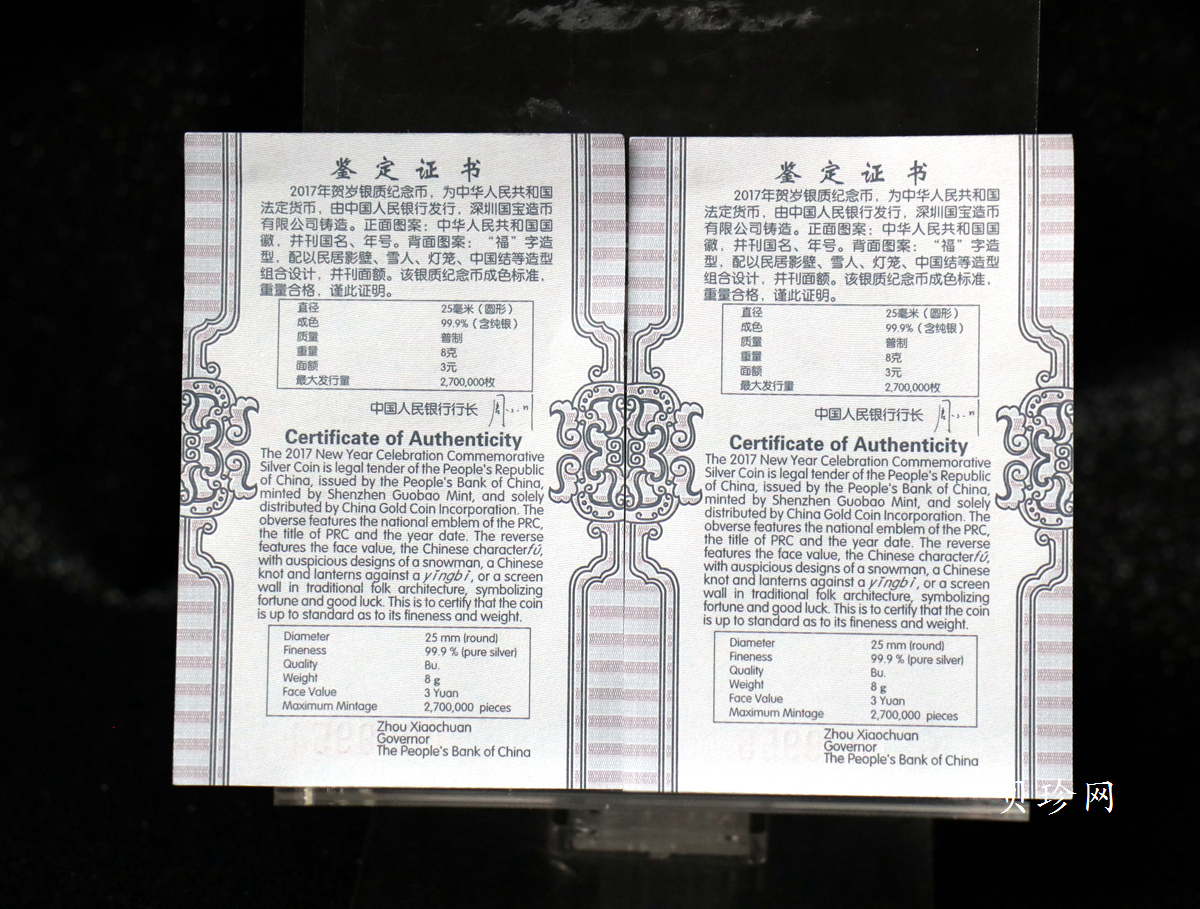 鉴定证书
2017年贺岁银质纪念币，为中华人民共和国
法定货币，由中国人民银行发行，深圳国宝造币
有限公司铸造。正面图案：中华人民共和国国
徽，并刊国名、年号。背面图案：“福”字造
型，配以民居影壁、雪人、灯笼、中国结等造型
组合设计，并刊面额。该银质纪念币成色标准，
重量合格，谨此证明。
直径 25毫米（圆形）
成色 99.9%（含纯银）
质量 普制
重量 8克
面额 3元
最大发行量 2,700,000枚
中国人民银行行长
Certificate of Authenticity
The 2017 New Year Celebration Commemorative
Silver Coin is legal tender of the People's Republic
of China, issued by the People's Bank of China,
minted by Shenzhen Guobao Mint, and solely
distributed by China Gold Coin Incorporation. The
obverse features the national emblem of the PRC,
the title of PRC and the year date. The reverse
features the face value, the Chinese character fú,
with auspicious designs of a snowman, a Chinese
knot and lanterns against a yǐngbì, or a screen
wall in traditional folk architecture, symbolizing
fortune and good luck. This is to certify that the coin
is up to standard as to its fineness and weight.
Diameter 25 mm (round)
Fineness 99.9 % (pure silver)
Quality Bu.
Weight 8 g
Face Value 3 Yuan
Maximum Mintage 2,700,000 pieces
Zhou Xiaochuan
Governor
The People's Bank of China
鉴定证书
2017年贺岁银质纪念币，为中华人民共和国
法定货币，由中国人民银行发行，深圳国宝造币
有限公司铸造。正面图案：中华人民共和国国
徽，并刊国名、年号。背面图案：“福”字造
型，配以民居影壁、雪人、灯笼、中国结等造型
组合设计，并刊面额。该银质纪念币成色标准，
重量合格，谨此证明。
直径 25毫米（圆形）
成色 99.9%（含纯银）
质量 普制
重量 8克
面额 3元
最大发行量 2,700,000枚
中国人民银行行长
Certificate of Authenticity
The 2017 New Year Celebration Commemorative
Silver Coin is legal tender of the People's Republic
of China, issued by the People's Bank of China,
minted by Shenzhen Guobao Mint, and solely
distributed by China Gold Coin Incorporation. The
obverse features the national emblem of the PRC,
the title of PRC and the year date. The reverse
features the face value, the Chinese character fú,
with auspicious designs of a snowman, a Chinese
knot and lanterns against a yǐngbì, or a screen
wall in traditional folk architecture, symbolizing
fortune and good luck. This is to certify that the coin
is up to standard as to its fineness and weight.
Diameter 25 mm (round)
Fineness 99.9 % (pure silver)
Quality Bu.
Weight 8 g
Face Value 3 Yuan
Maximum Mintage 2,700,000 pieces
Zhou Xiaochuan
Governor
The People's Bank of China
贝珍网